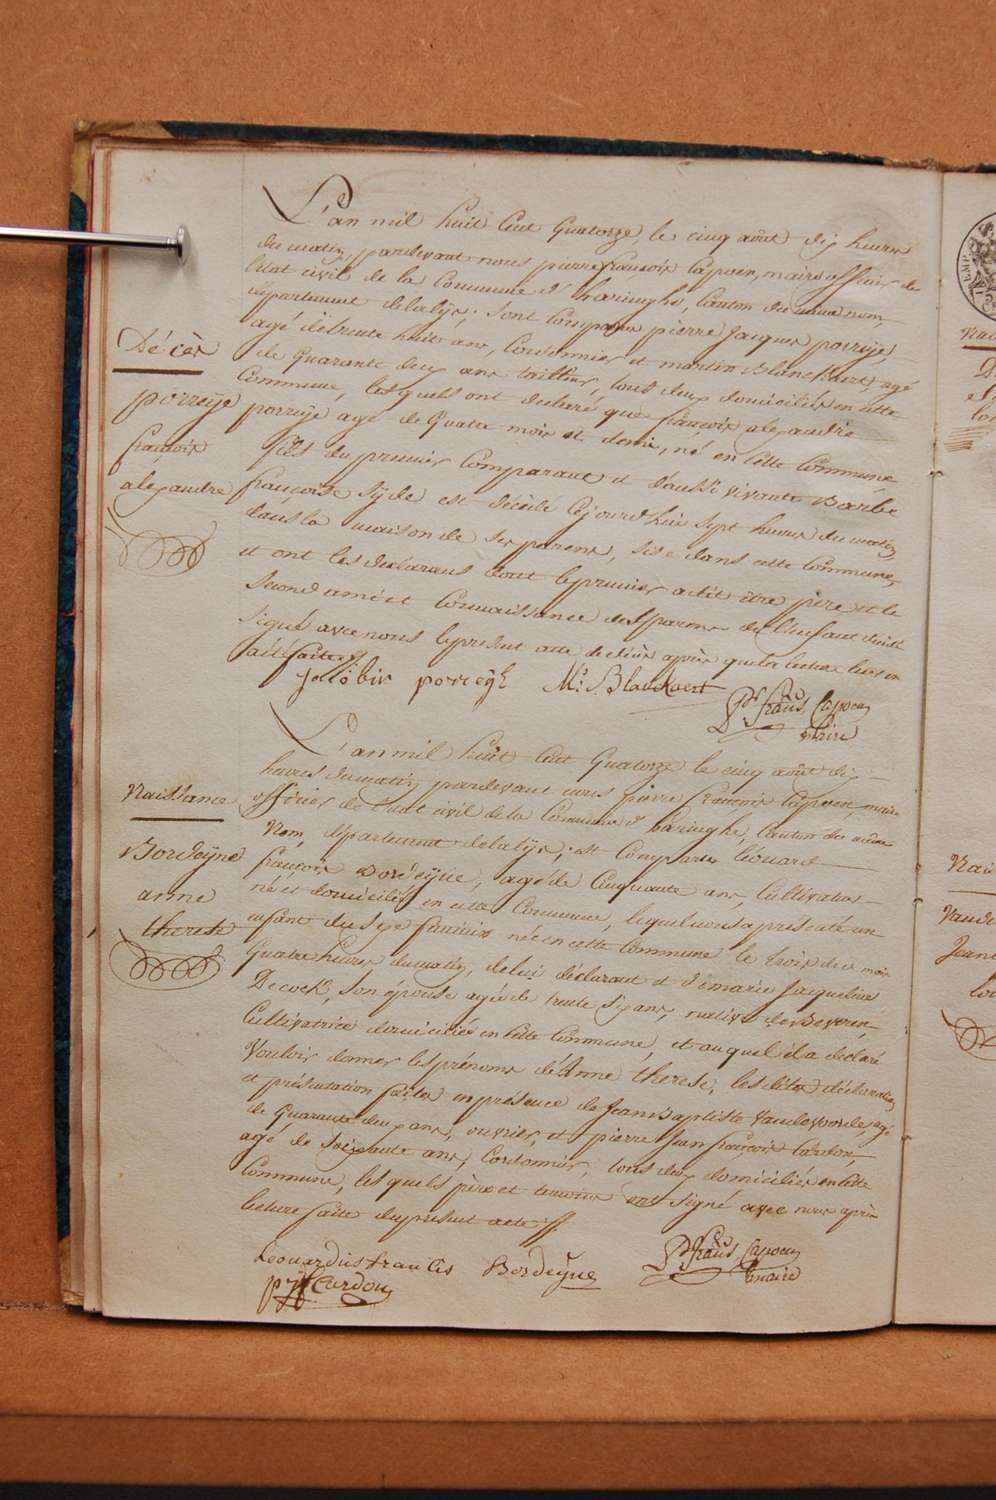 L'an mil huit cent quatorze, le cinq août dix heures
du matin, pardevant nous pierre françois Capoen, maire officier de
l'état civil de la Commune d'haringhe, Canton du même nom,
département delalijs; sont Comparus pierre Jacques porreije,
agé detrente huit ans, Cordonnier et martin Blanckaert, agé
de Quarante deux ans tailleur, tous deux domiciliés en cette
Commune, lesquels ont declaré que françois alexandre
Décès
porreije
françois
alexandre
porreije agé de Quatre mois et demi, né en Cette Commune
fils du premier Comparant et d'aussi vivante Barbe
françoise est décédé Cejourd'hui sept heures du matin,
dans la maison de ses parens, sise dans cette Commune,
et ont les declarans dont le premier a dit être père et le
Second ami et Connaissance des parens de l'enfant
Signé avec nous le present acte de décès après que la lecture leur en
ait été faite
porreije M. Blanckaert
françois Capoen
maire
L'an mil huit Cent Quatorze le cinq août dix
heures du matin, pardevant nous pierre françois Capoen, maire
officier de l'état civil de la Commune d'haringhe, Canton du même
Nom, département delalijs; est Comparu léonard
Naissance
Bordeyne
anne
therese
françois Bordeyne, agé de Cinquante ans, Cultivateur
né et domicilié en cette Commune, lequel nous a présenté un
enfant du sexe féminin née en cette Commune le trois de ce mois
Quatre heures du matin, de lui déclarant et de marie Jacqueline
Decock, son épouse agée de trente six ans, native de Beveren,
Cultivatrice domiciliée en Cette Commune, et auquel il a declaré
Vouloir donner les prénoms de Anne therese, les dites déclaration
et présentation faites en présence de Jean Baptiste Vandevoorde, agé
de Quarante deux ans, ouvrier, et pierre Jean françois Cardon,
agé de Soixante ans, Cordonnier, tous deux domiciliés en Cette
Commune, lesquels père et temoins ont signé avec nous après
lecture faite du présent acte
Leonardus francis Bordeyne
françois Capoen
maire
pJf Cardon